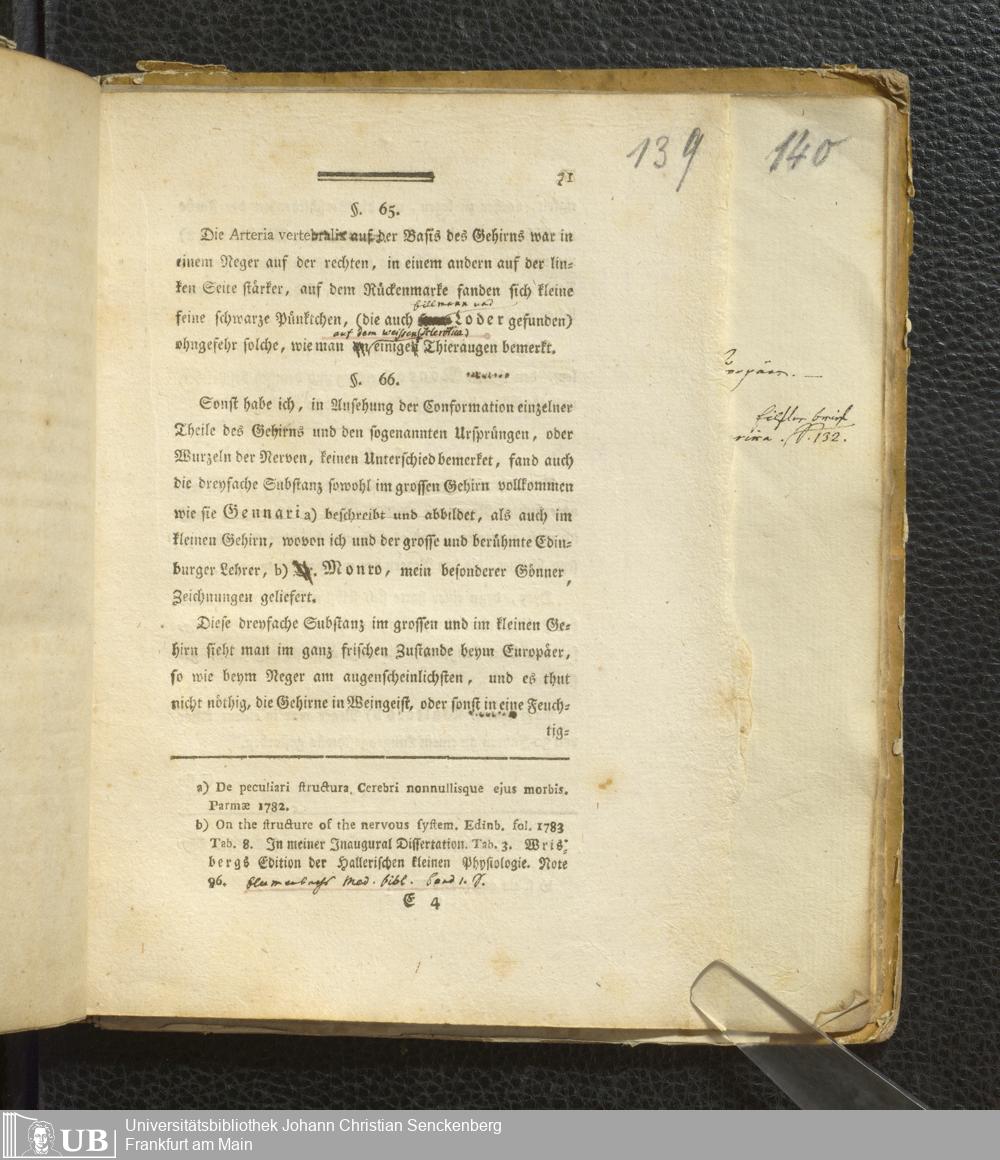 139 140
71
§. 65.
Die Arteria vertebralis auf der Basis des Gehirns war in
einem Neger auf der rechten, in einem andern auf der lin-
ken Seite stärker, auf dem Rückenmarke fanden sich kleine
Billmann und
feine schwarze Pünktchen, (die auch Loder gefunden)
auf dem weissen (sclerotica)
ohngefehr solche, wie man einigen Thieraugen bemerkt.
§. 66.
Sonst habe ich, in Ansehung der Conformation einzelner
Theile des Gehirns und den sogenannten Ursprüngen, oder
Wurzeln der Nerven, keinen Unterschied bemerket, fand auch
die dreyfache Substanz sowohl im grossen Gehirn vollkommen
wie sie Gennari a) beschreibt und abbildet, als auch im
kleinen Gehirn, wovon ich und der grosse und berühmte Edin-
burger Lehrer, b) Monro, mein besonderer Gönner,
Zeichnungen geliefert.
Diese dreyfache Substanz im grossen und im kleinen Ge-
hirn sieht man im ganz frischen Zustande beym Europäer,
so wie beym Neger am augenscheinlichsten, und es thut
nicht nöthig, die Gehirne in Weingeist, oder sonst in eine Feuch-
tig-
a) De peculiari structura Cerebri nonnullisque ejus morbis.
Parmæ 1782.
b) On the structure of the nervous system. Edinb. fol. 1783
Tab. 8. In meiner Inaugural Dissertation. Tab. 3. Wris-
bergs Edition der Hallerischen kleinen Physiologie. Note
96. Blumenbachs Med. Bibl. Band 1. S.
E 4
S. 132.
Universitätsbibliothek Johann Christian Senckenberg
Frankfurt am Main
UB